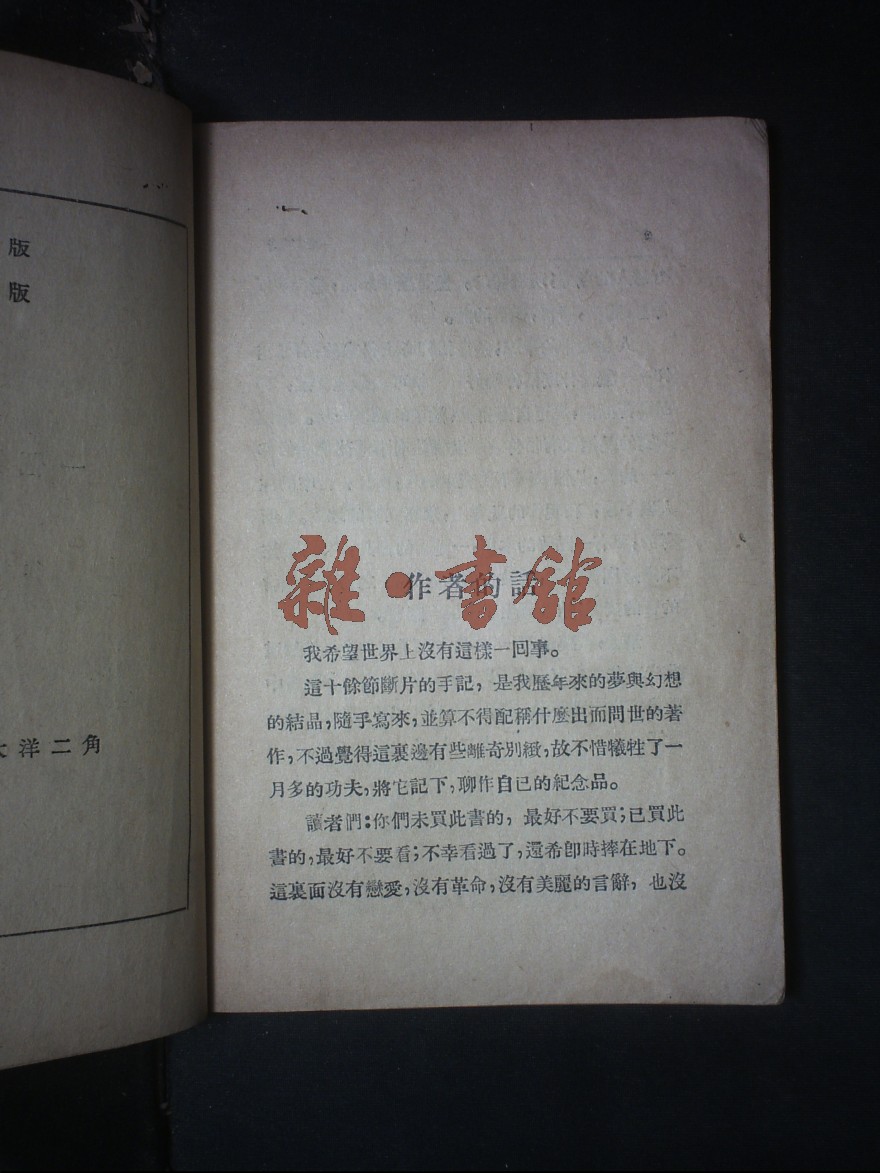 版
版
大洋二角
雜·書舘
作者的話
我希望世界上沒有這樣一回事。
這十餘節斷片的手記，是我歷年來的夢與幻想
的結晶，隨手寫來，並算不得配稱什麽出而問世的著
作，不過覺得這裏邊有些離奇別緻，故不惜犧牲了一
月多的功夫，將它記下，聊作自己的紀念品。
讀者們：你們未買此書的，最好不要買；已買此
書的，最好不要看；不幸看過了，還希卽時摔在地下。
這裏面沒有戀愛，沒有革命，沒有美麗的言辭，也沒